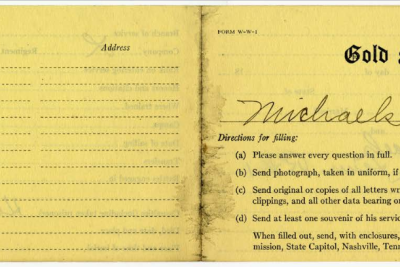 Address
FORM W-W-1
Gold
Michaels
Directions for filling:
(a) Please answer every question in full.
(b) Send photograph, taken in uniform, if
(c) Send original or copies of all letters
clippings, and all other data bearing
(d) Send at least one souvenir of his
When filled out, send, with enclosures,
mission, State Capitol, Nashville,